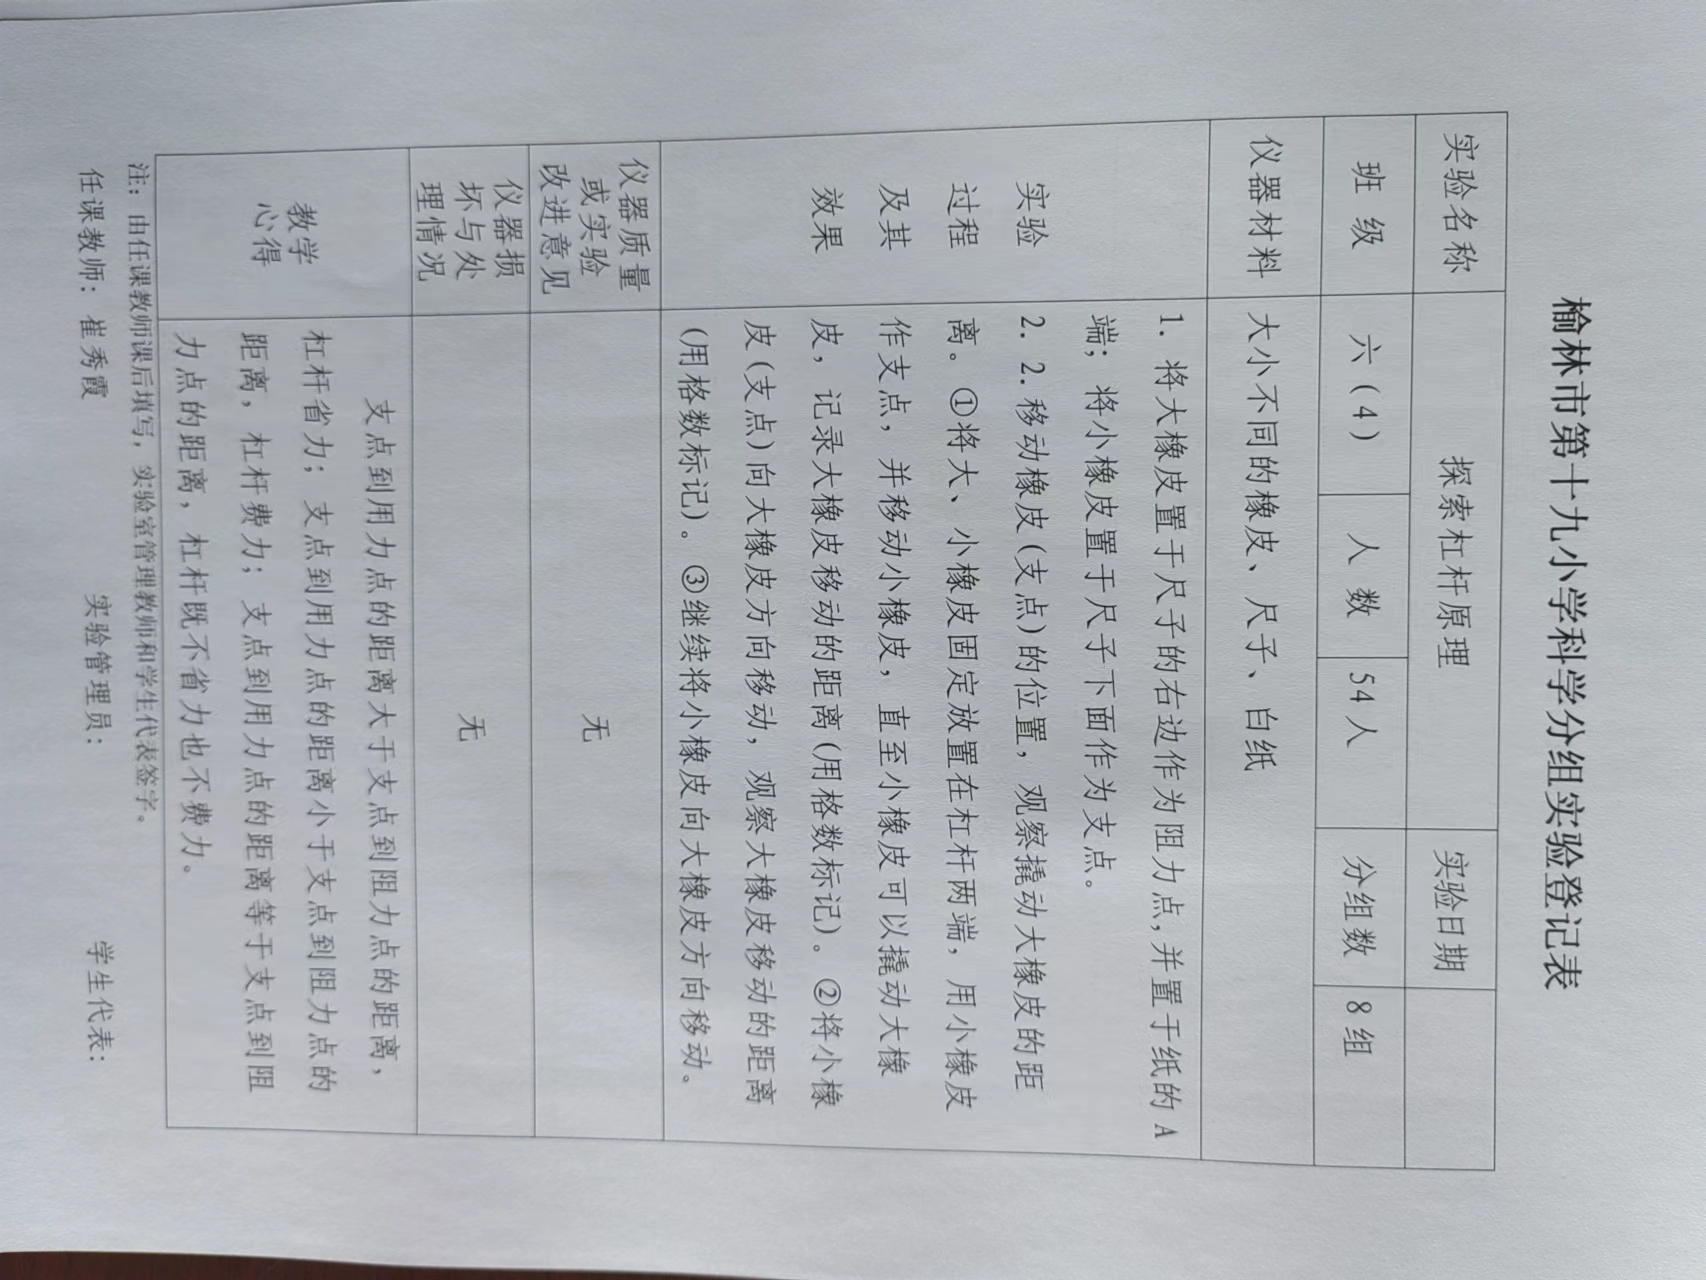 榆林市第十九小学科学分组实验登记表
实验名称 探索杠杆原理 实验日期
班 级 六（4） 人 数 54人 分组数 8组
仪器材料 大小不同的橡皮、尺子、白纸
实验
过程
及其
效果
1. 将大橡皮置于尺子的右边作为阻力点,并置于纸的A
端；将小橡皮置于尺子下面作为支点。
2. 2.移动橡皮(支点)的位置，观察撬动大橡皮的距
离。①将大、小橡皮固定放置在杠杆两端，用小橡皮
作支点，并移动小橡皮，直至小橡皮可以撬动大橡
皮，记录大橡皮移动的距离(用格数标记)。②将小橡
皮(支点)向大橡皮方向移动，观察大橡皮移动的距离
(用格数标记)。③继续将小橡皮向大橡皮方向移动。
仪器质量
或实验
改进意见
无
仪器损
坏与处
理情况
无
教学
心得
支点到用力点的距离大于支点到阻力点的距离，
杠杆省力；支点到用力点的距离小于支点到阻力点的
距离，杠杆费力；支点到用力点的距离等于支点到阻
力点的距离，杠杆既不省力也不费力。
注：由任课教师课后填写，实验室管理教师和学生代表签字。
任课教师：崔秀霞 实验管理员： 学生代表：